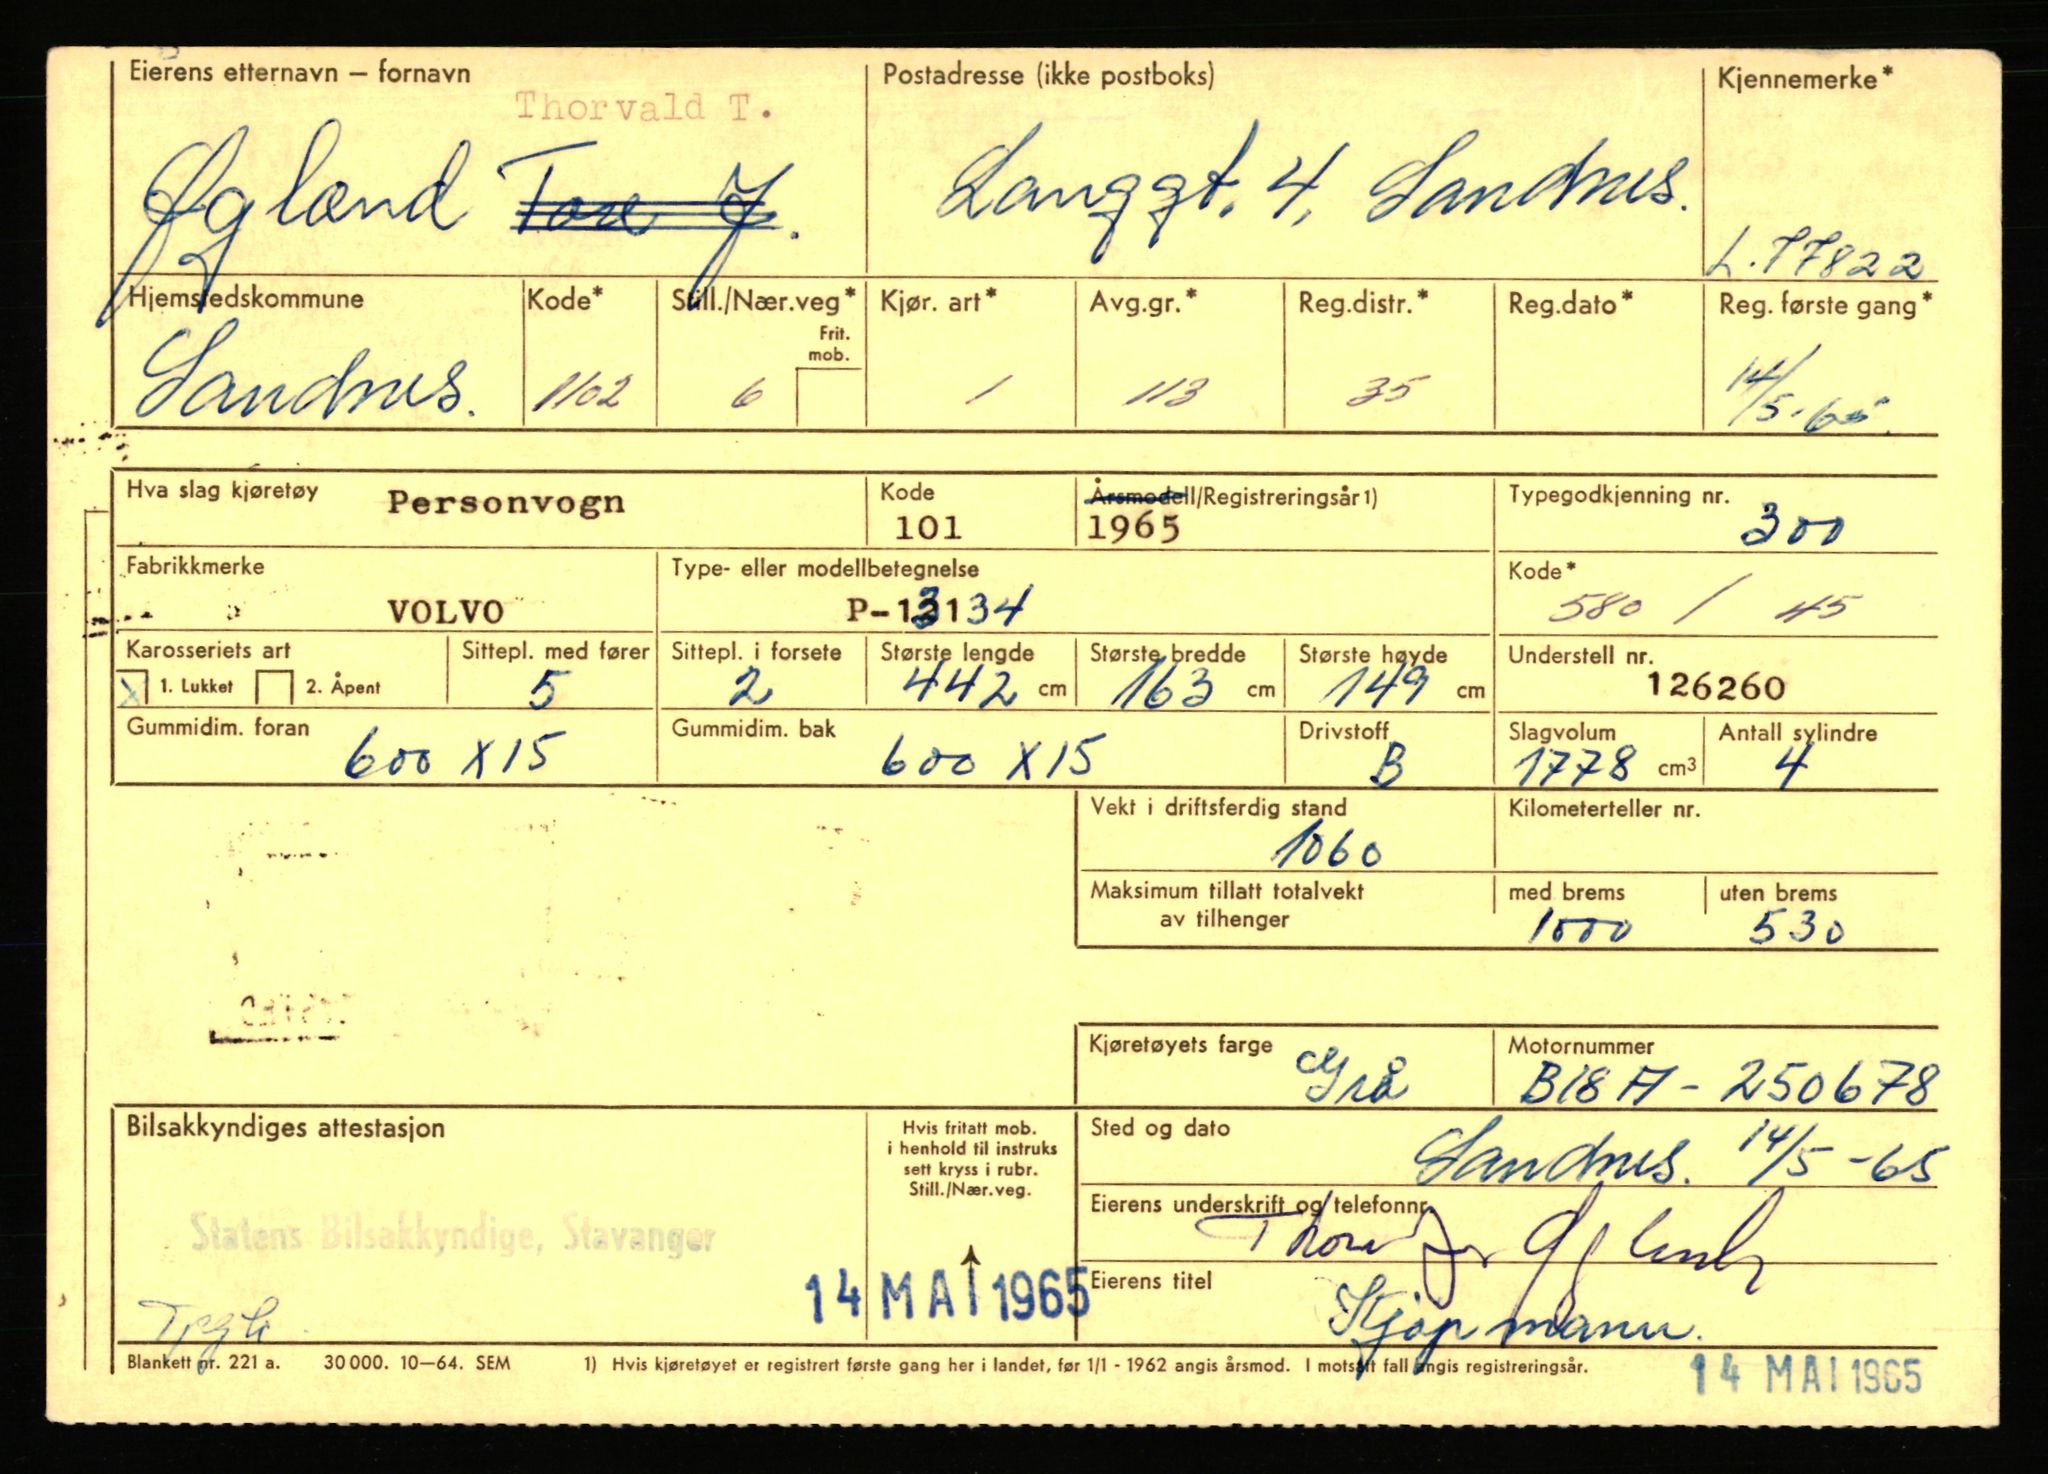 Eierens etternavn — fornavn
Postadresse (ikke postboks)
Kjennemerke*
Thorvald T.
Øglænd Tore J.
Langgt. 4, Sandnes.
L.77822
Hjemstedskommune
Kode*
Still./Nær.veg*
Frit. mob.
Kjør. art*
Avg.gr.*
Reg.distr.*
Reg.dato*
Reg. første gang*
Sandnes.
1102
6
1
113
35
14/5-65.
Hva slag kjøretøy
Personvogn
Kode
101
Årsmodell/Registreringsår 1)
1965
Typegodkjenning nr.
300
Fabrikkmerke
VOLVO
Type- eller modellbetegnelse
P-13134
Kode*
580 / 45
Karosseriets art
X 1. Lukket 2. Åpent
Sittepl. med fører
5
Sittepl. i forsete
2
Største lengde
442 cm
Største bredde
163 cm
Største høyde
149 cm
Understell nr.
126260
Gummidim. foran
600 X 15
Gummidim. bak
600 X 15
Drivstoff
B
Slagvolum
1778 cm³
Antall sylindre
4
Vekt i driftsferdig stand
1060
Kilometerteller nr.
Maksimum tillatt totalvekt
av tilhenger
med brems
1000
uten brems
530
Kjøretøyets farge
Grå
Motornummer
B18A - 250678
Bilsakkyndiges attestasjon
Hvis fritatt mob.
i henhold til instruks
sett kryss i rubr.
Still./Nær.veg.
Sted og dato
Sandnes. 14/5-65
Eierens underskrift og telefonnr.
Statens Bilsakkyndige, Stavanger
14 MAI 1965
Eierens titel
Kjøpmann.
Blankett nr. 221 a. 30 000. 10—64. SEM
1) Hvis kjøretøyet er registrert første gang her i landet, før 1/1 - 1962 angis årsmod. I motsatt fall angis registreringsår.
14 MAI 1965